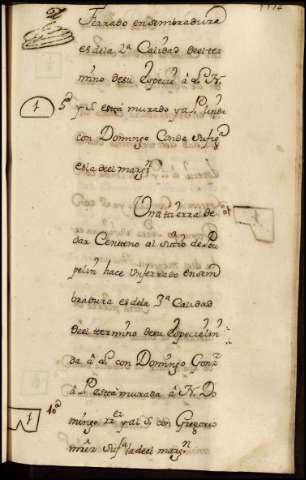 Ferrado en sembradura
es dela 2ª Calidad del ter
mino de su Especie â L. N.
y S. esta murado y a P. linda
con Domingo Conde su fig
es la del marg.n
Una tierra de
dar Centeno al sitio de
pelin hace un ferrado en sem
bradura es dela 3ª Calidad
del termino de su Especie lin
da â L. con Domingo Gonz
â P. esta murada â N. Do
mingo y al S. con Gregorio
su fig.a la del marg.n